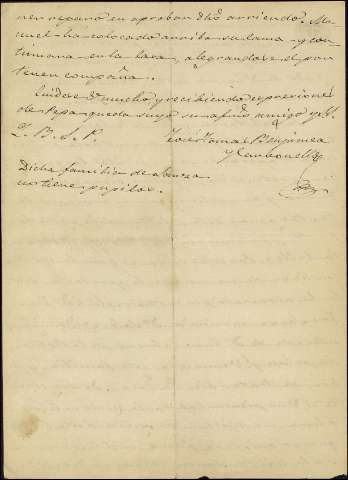 ner reparo en aprobar dho arriendo. Ma-
nuel ha colocado arriba su cama y con-
tinua en la casa, alegrandose el por
tener compaña.
Cuidese V. mucho y recibiendo expresiones
de Pepa queda suyo su afmo amigo y S.
Q. B. S. M.
José Tomas
y
Dicha familia de
no tiene pupilos.